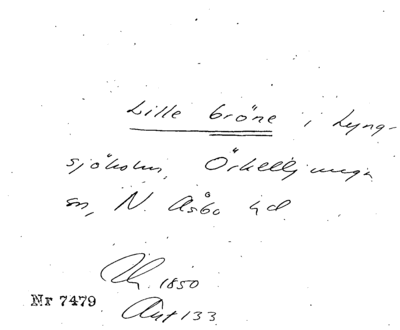 Lille bröne i Lyng-
sjöholm, Örkelljunga
sn, N. Åsbo hd
1850
Nr 7479
Ant 133